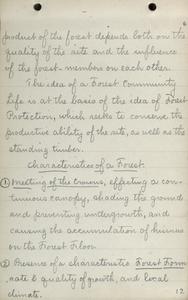 product of the forest depends both on the
quality of the site and the influence
of the forest members on each other.
The idea of a Forest Community
Life is at the basis of the idea of Forest
Protection, which seeks to conserve the
productive ability of the site, as well as the
standing timber.
Characteristics of a Forest.
① Meeting of the Crowns, effecting a con-
tinuous canopy, shading the ground
and preventing undergrowth, and
causing the accumulation of humus
on the Forest Floor.
② Presence of a characteristic Forest Form
rate & quality of growth, and local
climate.
12